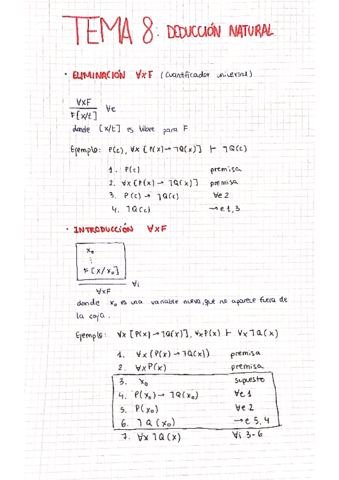 TEMA 8: DEDUCCIÓN NATURAL
· ELIMINACIÓN ∀xF (Cuantificador universal)
∀xF
F[x/t] ∀e
donde [x/t] es libre para F
Ejemplo: P(c), ∀x [P(x) → ¬Q(x)] ⊢ ¬Q(c)
1. P(c) premisa
2. ∀x [P(x) → ¬Q(x)] premisa
3. P(c) → ¬Q(c) ∀e 2
4. ¬Q(c) →e 1,3
· INTRODUCCIÓN ∀xF
x₀
⋮
F[x/x₀]
∀xF ∀i
donde x₀ es una variable nueva, que no aparece fuera de
la caja.
Ejemplo: ∀x [P(x) → ¬Q(x)], ∀xP(x) ⊢ ∀x ¬Q(x)
1. ∀x (P(x) → ¬Q(x)) premisa
2. ∀xP(x) premisa
3. x₀ supuesto
4. P(x₀) → ¬Q(x₀) ∀e 1
5. P(x₀) ∀e 2
6. ¬Q(x₀) →e 5,4
7. ∀x ¬Q(x) ∀i 3-6